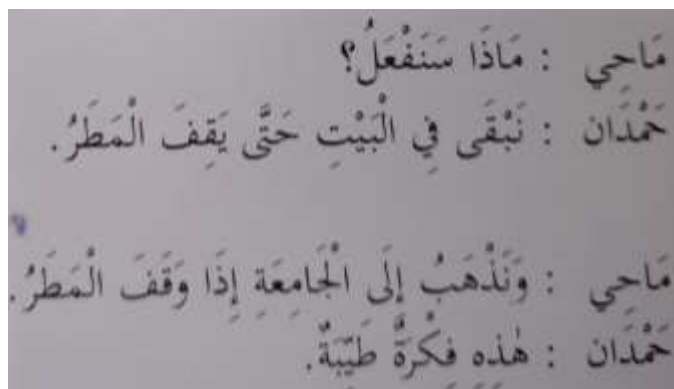 مَاحِي : مَاذَا سَنَفْعَلُ؟
حَمْدَان : نَبْقَى فِي الْبَيْتِ حَتَّى يَقِفَ الْمَطَرُ.
مَاحِي : وَنَذْهَبُ إِلَى الْجَامِعَةِ إِذَا وَقَفَ الْمَطَرُ.
حَمْدَان : هٰذِهِ فِكْرَةٌ طَيِّبَةٌ.